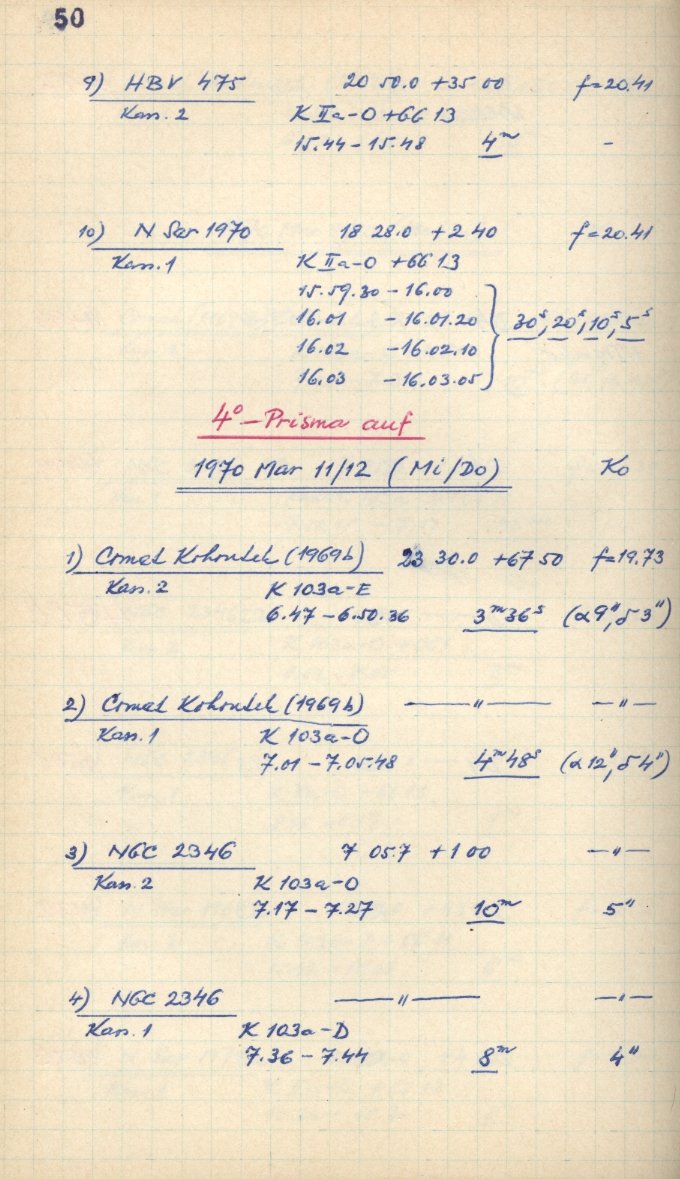 50
9) HBV 475 20 50.0 +35 00 f=20.41
Kass. 2 K IIa-O +GG 13
15.44 - 15.48 4ᵐ -
10) N Ser 1970 18 28.0 +2 40 f=20.41
Kass. 1 K IIa-O +GG 13
15.59.30 - 16.00
16.01 - 16.01.20 30ˢ, 20ˢ, 10ˢ, 5ˢ
16.02 - 16.02.10
16.03 - 16.03.05
4° - Prisma auf
1970 Mar 11/12 (Mi/Do) Ko
1) Comet Kohoutek (1969b) 23 30.0 +67 50 f=19.73
Kass. 2 K 103a-E
6.47 - 6.50.36 3ᵐ36ˢ (α9", δ3")
2) Comet Kohoutek (1969b) —"— —"—
Kass. 1 K 103a-O
7.01 - 7.05.48 4ᵐ48ˢ (α12", δ4")
3) NGC 2346 7 05.7 +1 00 —"—
Kass. 2 K 103a-O
7.17 - 7.27 10ᵐ 5"
4) NGC 2346 —"— —"—
Kass. 1 K 103a-D
7.36 - 7.44 8ᵐ 4"